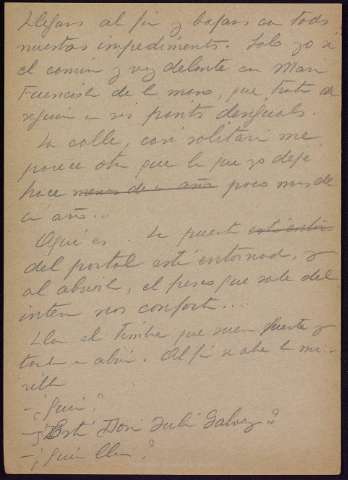 Llegan al fin y bajan con todo
nuestros impedimenta. Solo yo sé
el camino y voy delante con Mari
Fuencisla de la mano, que trata de
seguir a mis pasitos desiguales.
La calle, casi solitaria me
parece otra que la que yo dejé
hace menos de un año poco más de
un año...
Aquí es. La puerta está entor
del portal está entornada, y
al abrirla, el fresco que sale del
interior nos conforta...
Llamo al timbre que suena fuerte y
tarda en abrir. Al fin se abre la mi-
rilla
- ¿Quién?
- ¿Está Don Julián Galvez?
- ¿Quién llama?